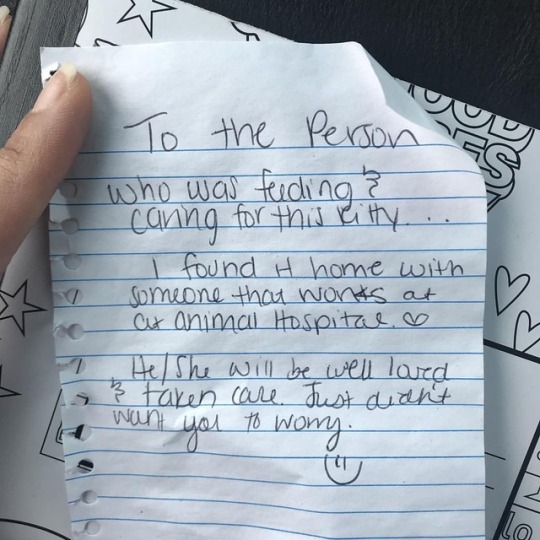 To the Person
who was feeding &
caring for this kitty...
I found it home with
someone that works at
at animal Hospital. ♡
He/She will be well loved
& taken care. Just didn't
want you to worry.
OOD
ES
LO